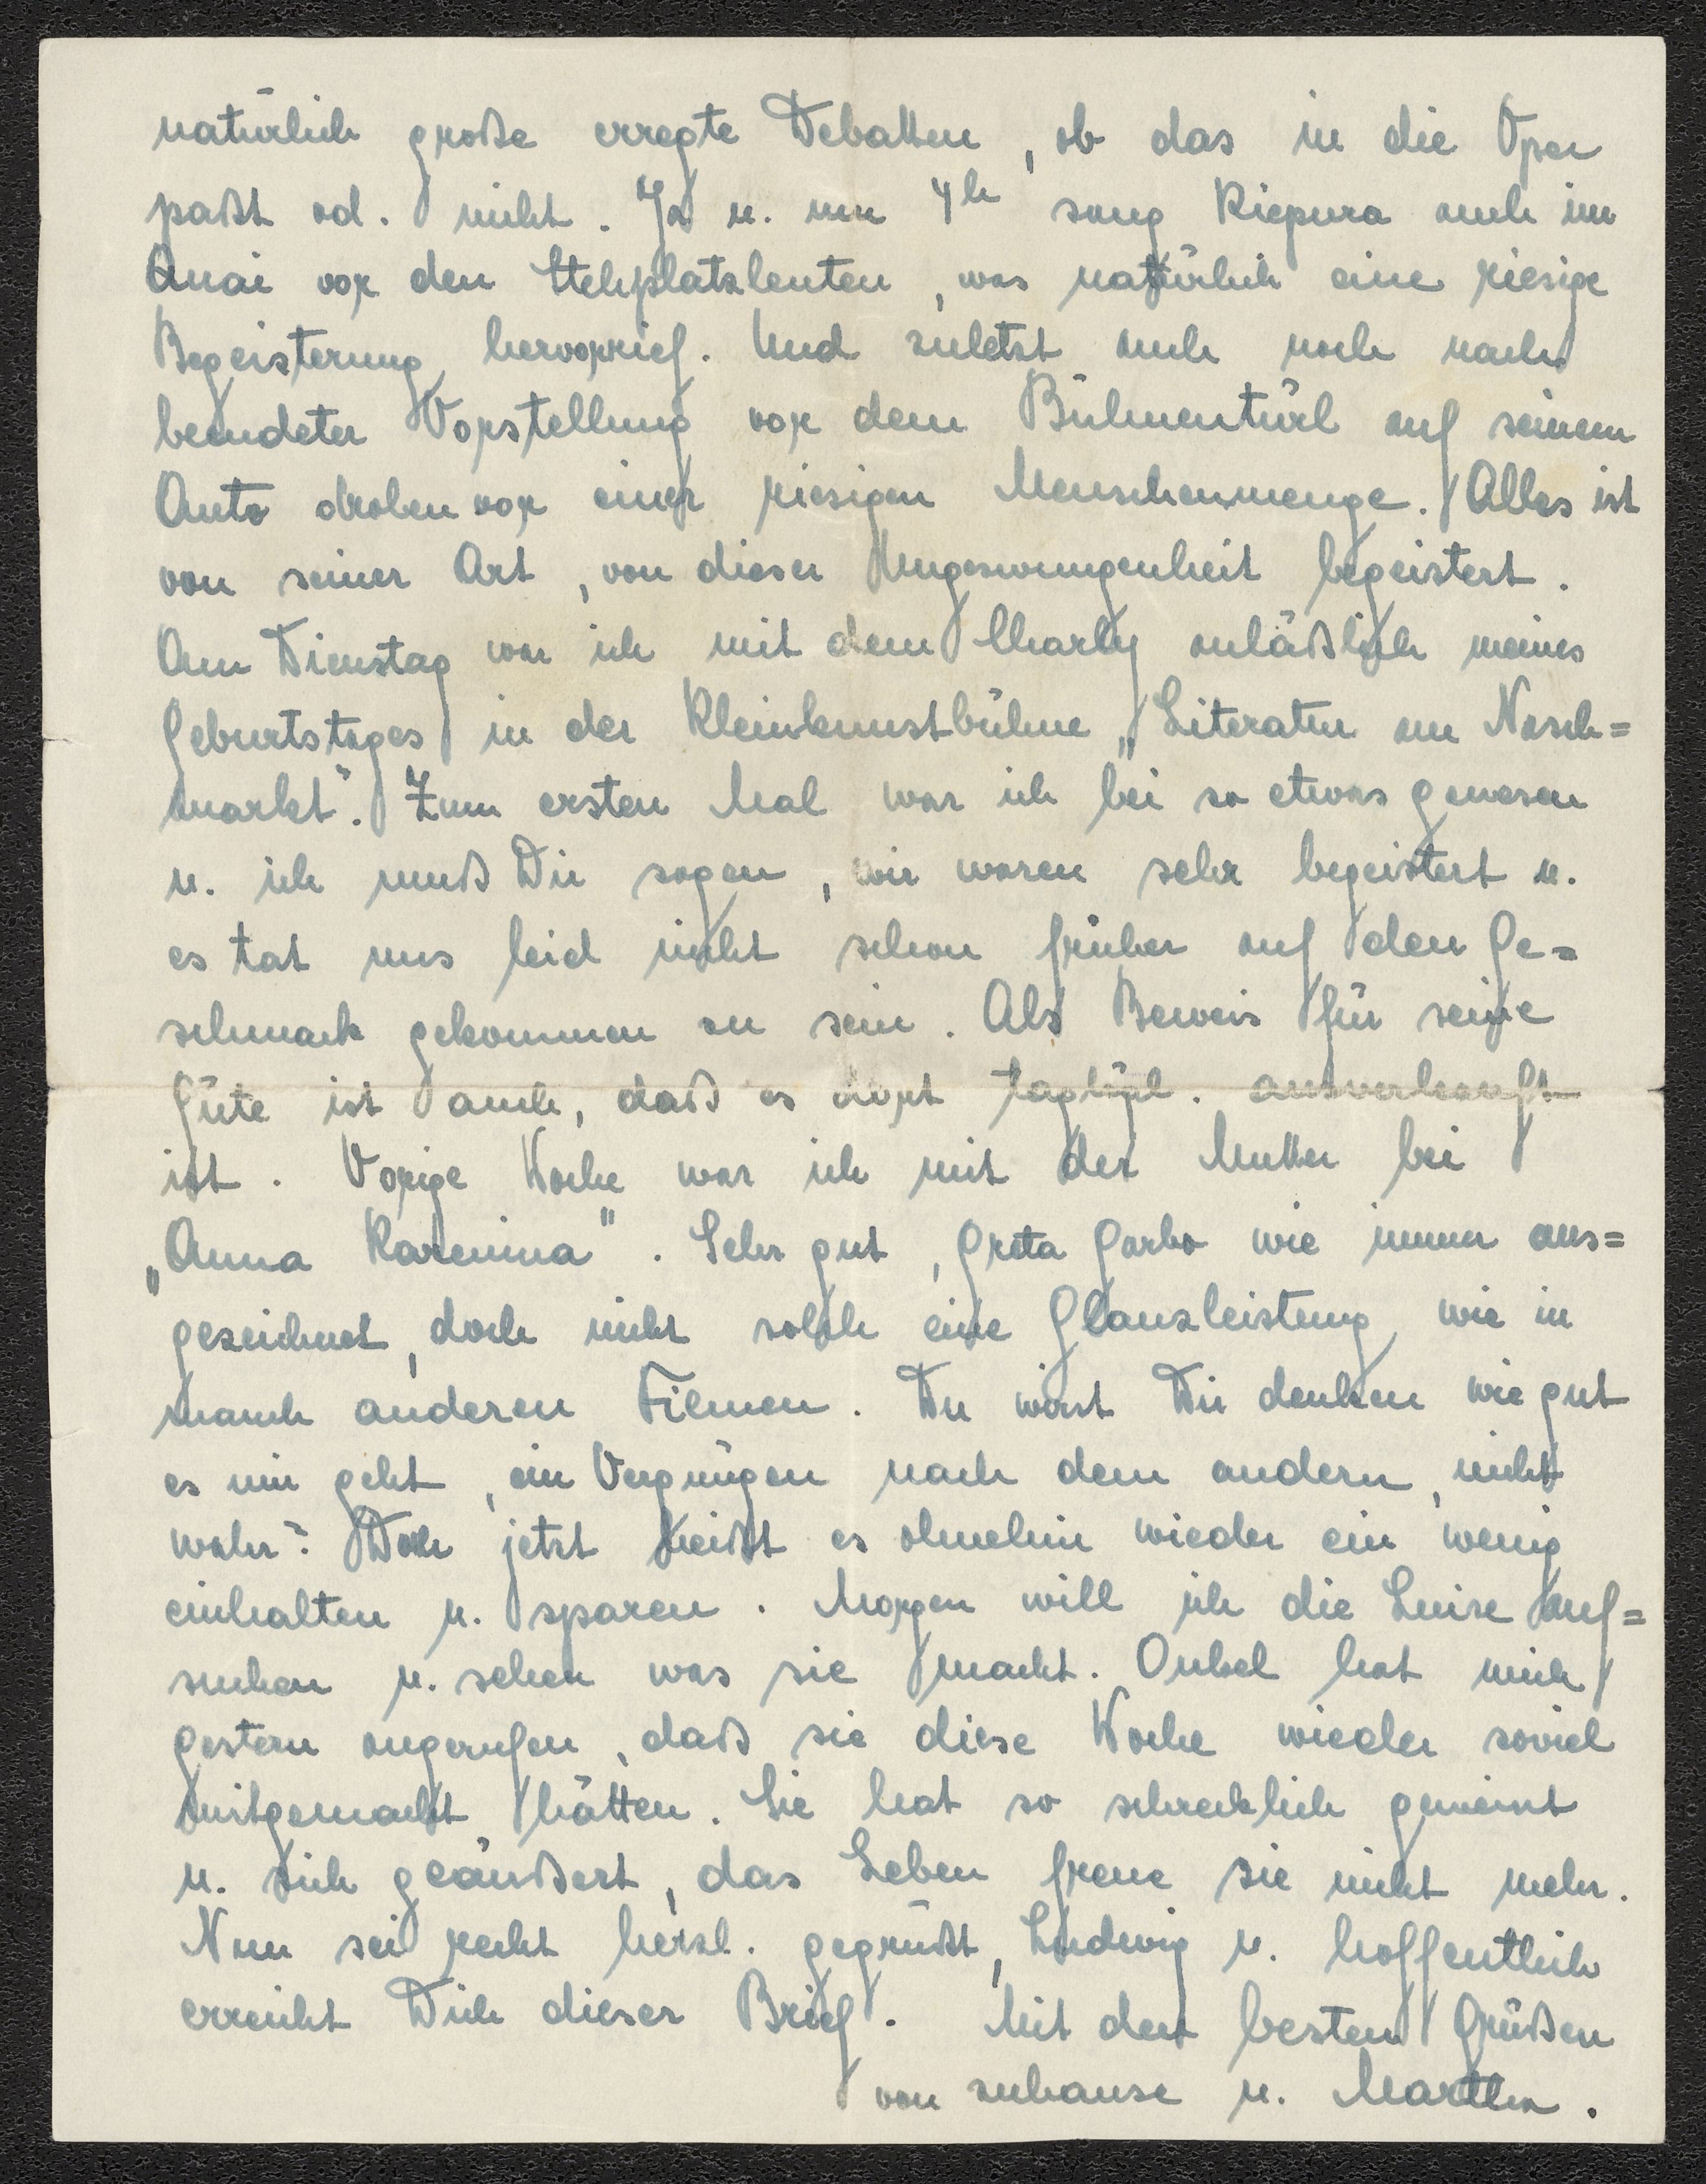 natürlich große erregte Debatten, ob das in die Oper
paßt od. nicht. Ja u. um 4h sang Kiepura auch im
Quai vor den Stehplatzleuten, was natürlich eine riesige
Begeisterung hervorrief. Und zuletzt auch noch nach
beendeter Vorstellung vor dem Bühnentürl auf seinem
Auto droben vor einer riesigen Menschenmenge. Alles ist
von seiner Art, von dieser Ungeswungenheit begeistert.
Am Dienstag war ich mit dem Charly anläßlich meines
Geburtstages in der Kleinkunstbühne „Literatur am Nasch=
markt". Zum ersten Mal war ich bei so etwas gewesen
u. ich muß Dir sagen, wir waren sehr begeistert u.
es tat uns leid nicht schon früher auf den Ge=
schmack gekommen zu sein. Als Beweis für seine
Güte ist auch, daß es dort tagtägl. ausverkauft
ist. Vorige Woche war ich mit der Mutter bei
„Anna Karenina". Sehr gut, Greta Garbo wie immer aus=
gezeichnet, doch nicht solch eine Glanzleistung wie in
manch anderen Filmen. Du wirst Dir denken wie gut
es mir geht, ein Vergnügen nach dem andern, nicht
wahr? Doch jetzt heißt es ohnehin wieder ein wenig
einhalten u. sparen. Morgen will ich die Luise auf=
suchen u. sehen was sie macht. Onkel hat mich
gestern angerufen, daß sie diese Woche wieder soviel
mitgemacht hätten. Sie hat so schrecklich geweint
u. sich geäußert, das Leben freue sie nicht mehr.
Nun sei recht herzl. gegrüßt, Ludwig u. hoffentlich
erreicht Dich dieser Brief. Mit den besten Grüßen
von zuhause u. Martha.